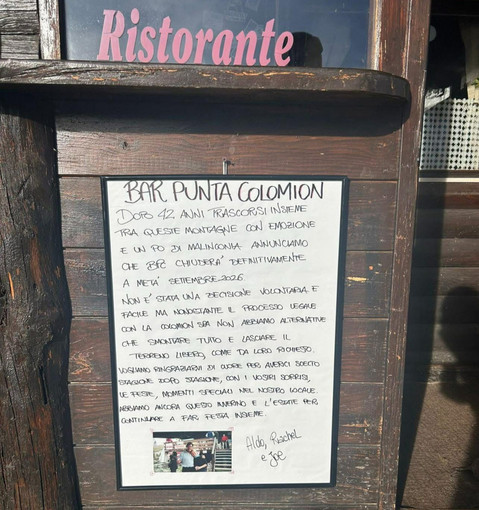 Ristorante
BAR PUNTA COLOMION
DOPO 42 ANNI TRASCORSI INSIEME
TRA QUESTE MONTAGNE CON EMOZIONE
E UN PO DI MALINCONIA ANNUNCIAMO
CHE BPC CHIUDERA' DEFINITIVAMENTE
A META' SETTEMBRE 2026
NON E' STATA UNA DECISIONE VOLONTARIA E
FACILE MA NONOSTANTE IL PROCESSO LEGALE
CON LA COLOMION SPA NON ABBIAMO ALTERNATIVE
CHE SMONTARE TUTTO E LASCIARE IL
TERRENO LIBERO, COME DA LORO RICHIESTO.
VOGLIAMO RINGRAZIARVI DI CUORE PER AVERCI SCELTO
STAGIONE DOPO STAGIONE, CON I VOSTRI SORRISI,
LE FESTE, MOMENTI SPECIALI NEL NOSTRO LOCALE.
ABBIAMO ANCORA QUESTO INVERNO E L'ESTATE PER
CONTINUARE A FAR FESTA INSIEME.
Aldo,
e Joe